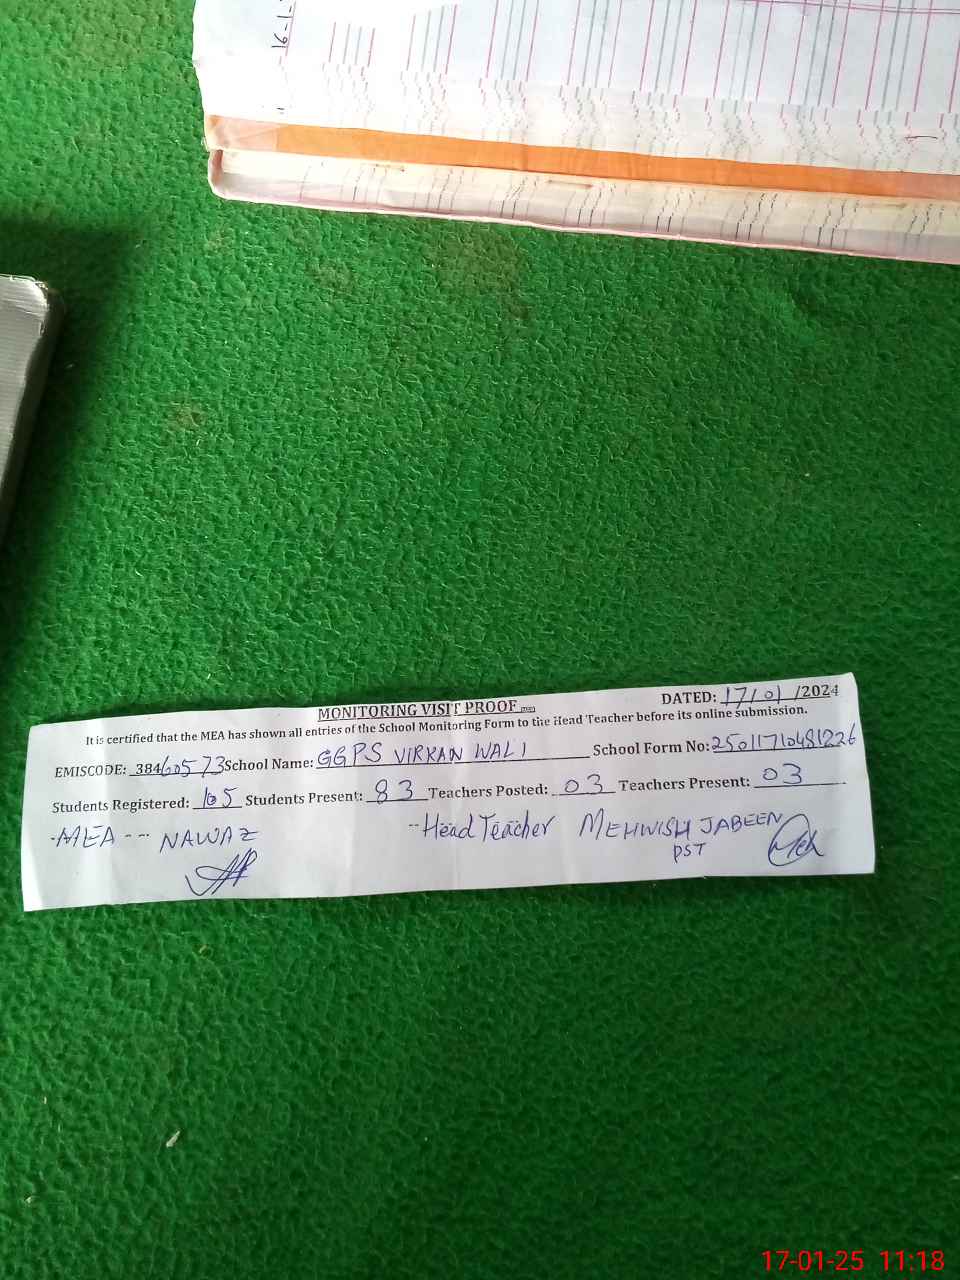 16-1-
MONITORING VISIT PROOF
DATED: 17/01/2024
It is certified that the MEA has shown all entries of the School Monitoring Form to the Head Teacher before its online submission.
EMISCODE: 38460573 School Name: GGPS VIRKAN WALI School Form No: 25011710481226
Students Registered: 105 Students Present: 83 Teachers Posted: 03 Teachers Present: 03
MEA --- NAWAZ --Head Teacher MEHWISH JABEEN
PST
17-01-25 11:18